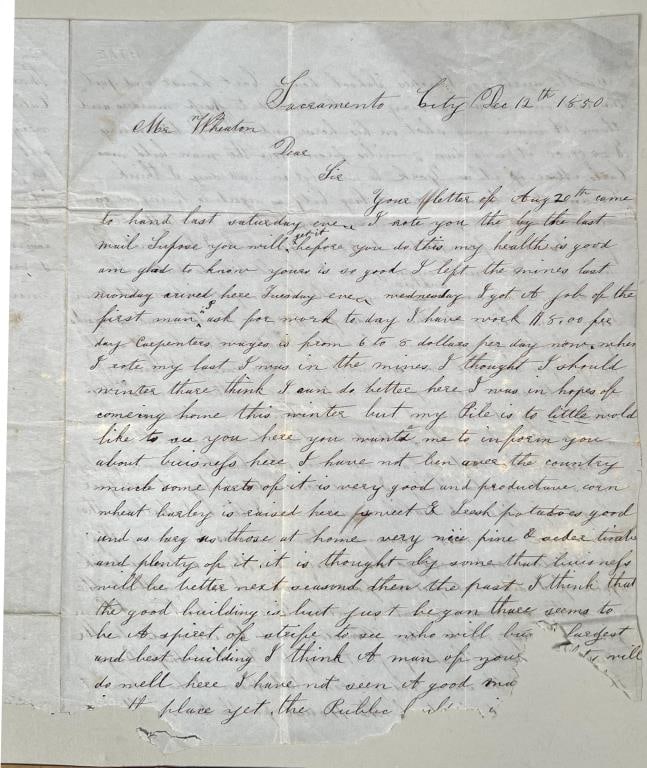 Sacramento City Dec 12th 1850
Mr Wheaton
Dear
Sir
Your letter of Aug 20th came
to hand last saturday eve I rote you the by the last
mail Supose you will get it before you do this my health is good
am glad to know yours is so good I left the mines last
monday arived here Tuesday eve wednesday I got A job of the
first man I ask for work to day I have work 8.00 per
day Carpenters wages is from 6 to 8 dollars per day now when
I rote my last I was in the mines I thought I should
winter thare think I can do better here I was in hopes of
comeing home this winter but my Pile is to little wold
like to see you here you wanted me to inform you
about buisness here I have not ben over the country
much some parts of it is very good and productive corn
wheat barley is raised here sweet & Irish potatoes good
and as larg as those at home very nice pine & seder timber
and plenty of it it is thought by some that buisness
will be better next seasond then the past I think that
the good building is but just began thare seems to
be A spiret of strife to see who will largest
and best building I think A man of your will
do well here I have not seen A good
place yet the Public